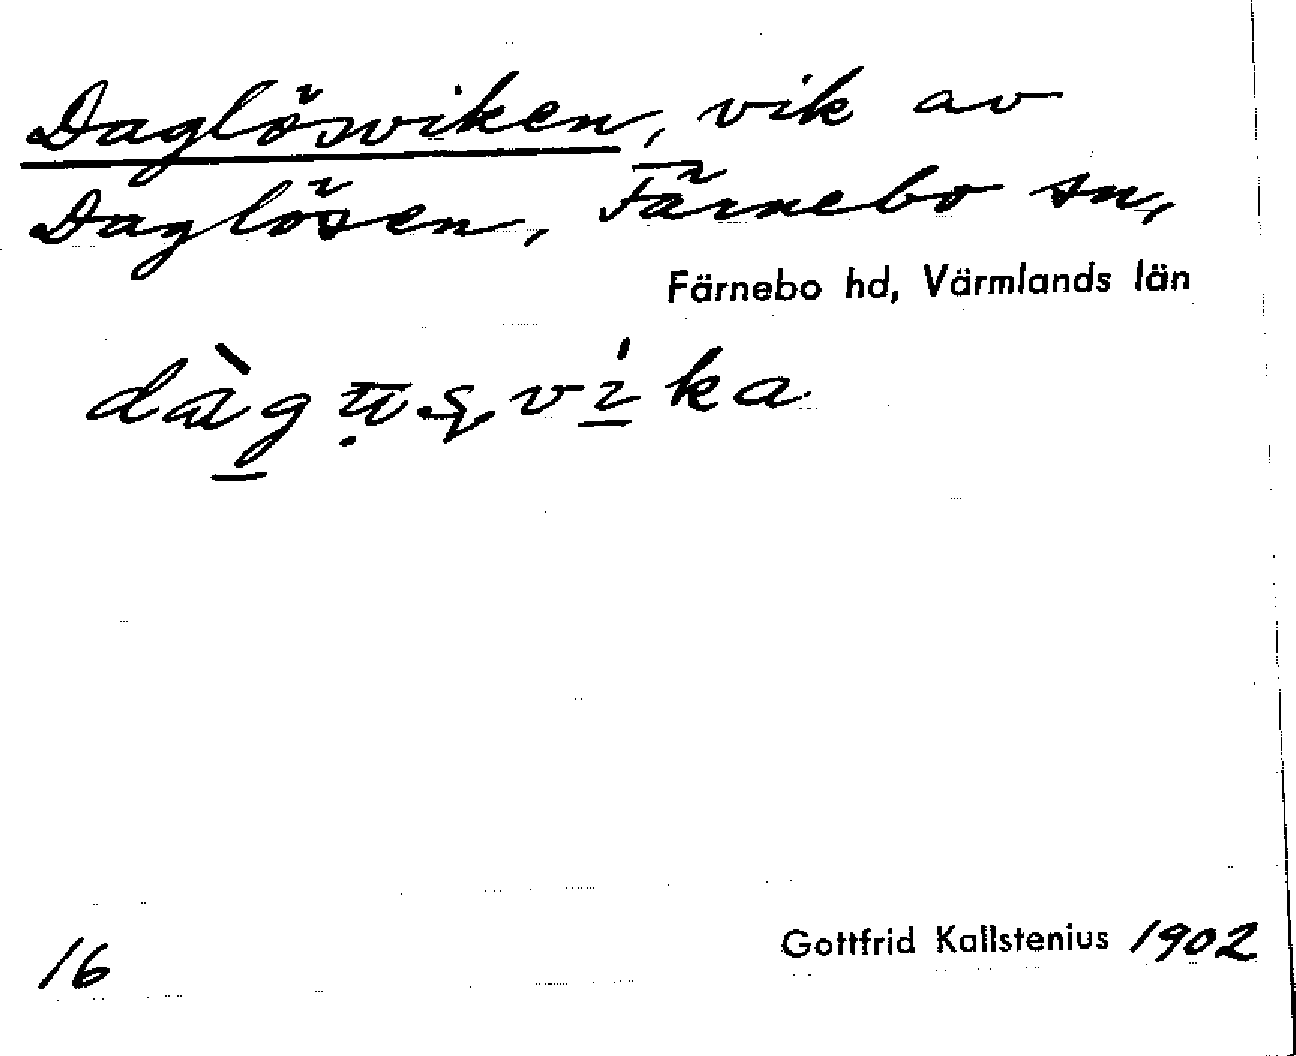 Daglösviken, vik av
Daglösen, Färnebo sn,
Färnebo hd, Värmlands län
16
Gottfrid Kallstenius 1902